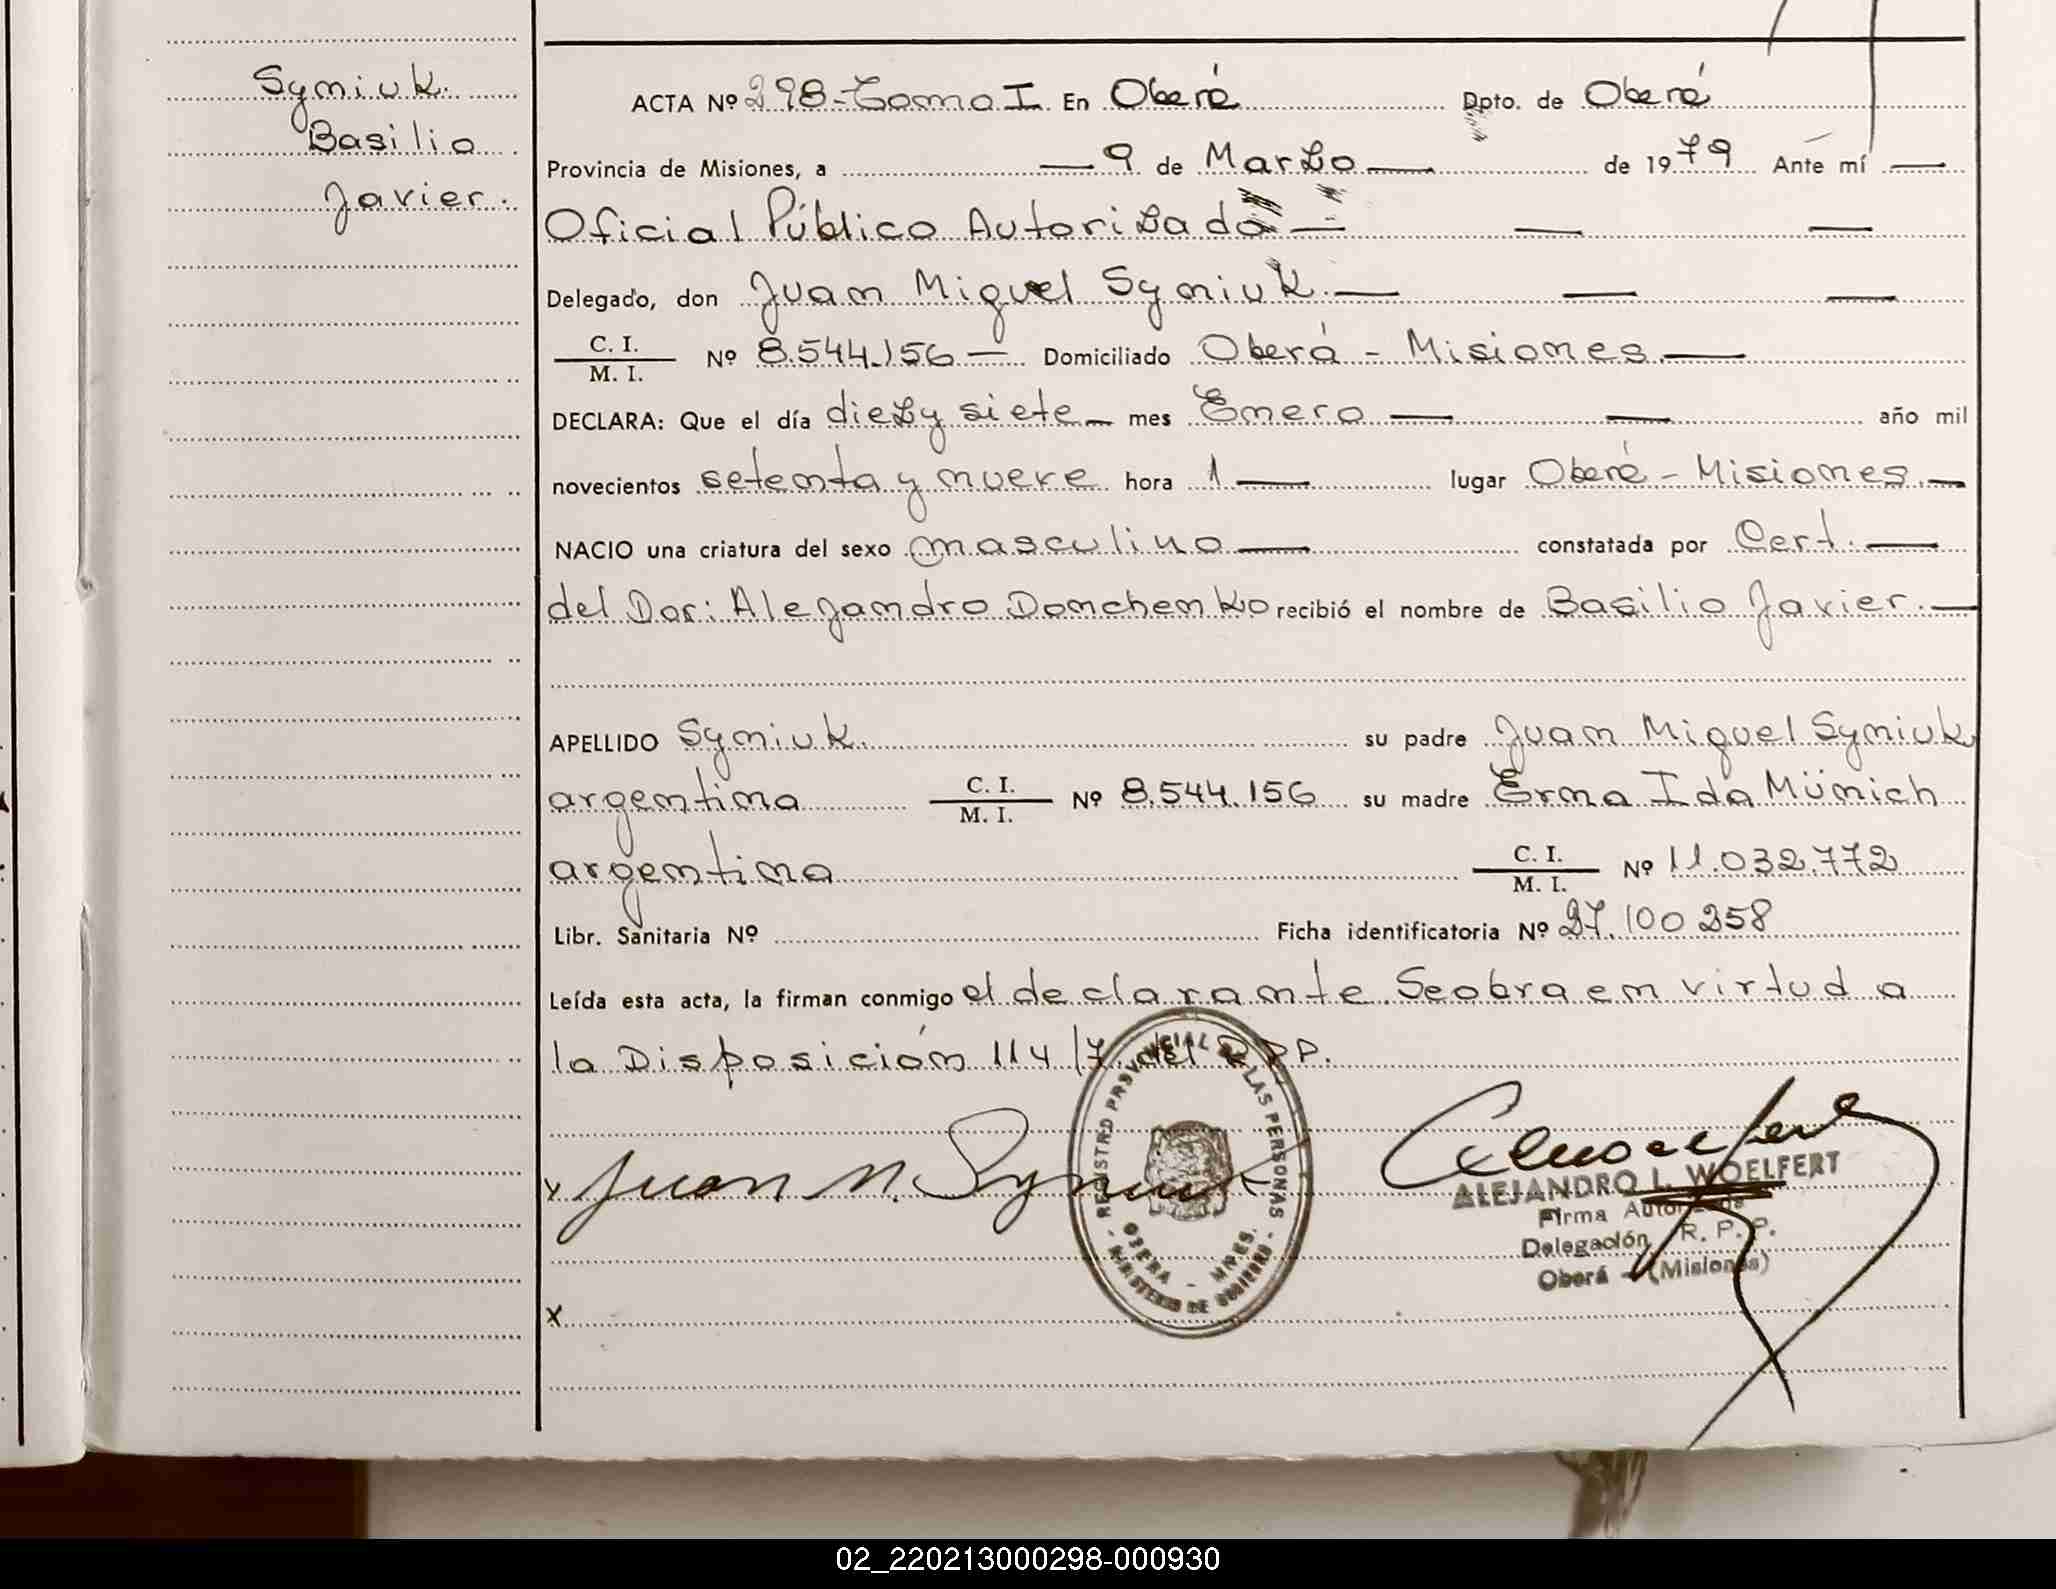 Syniuk.
Basilio
Javier.
ACTA Nº 298-Tomo I En Oberá Dpto. de Oberá
Provincia de Misiones, a — 9 de Marzo — de 1979 Ante mí —
Oficial Público Autorizado — — —
Delegado, don Juan Miguel Syniuk. — — —
C. I.
M. I. Nº 8.544.156 — Domiciliado Oberá - Misiones. —
DECLARA: Que el día diez y siete — mes Enero — — año mil
novecientos setenta y nueve hora 1 — lugar Oberá - Misiones. —
NACIO una criatura del sexo masculino — constatada por Cert. —
del Dor: Alejandro Domchenko recibió el nombre de Basilio Javier. —
APELLIDO Syniuk. su padre Juan Miguel Syniuk
argentina C. I. M. I. Nº 8.544.156 su madre Erma Ida Münich
argentina C. I. M. I. Nº 11.032.772
Libr. Sanitaria Nº Ficha identificatoria Nº 27.100258
Leída esta acta, la firman conmigo el declarante. Seobra en virtud a
la Disposición 114/7. del R.P.P.
Juan M. Syniuk
REGISTRO PROVINCIAL DE LAS PERSONAS
OBERA - MNES.
- MINISTERIO DE GOBIERNO -
ALEJANDRO L. WOELFERT
Firma Autorizada
Delegación R. P. P.
Oberá - (Misiones)
X
02_220213000298-000930